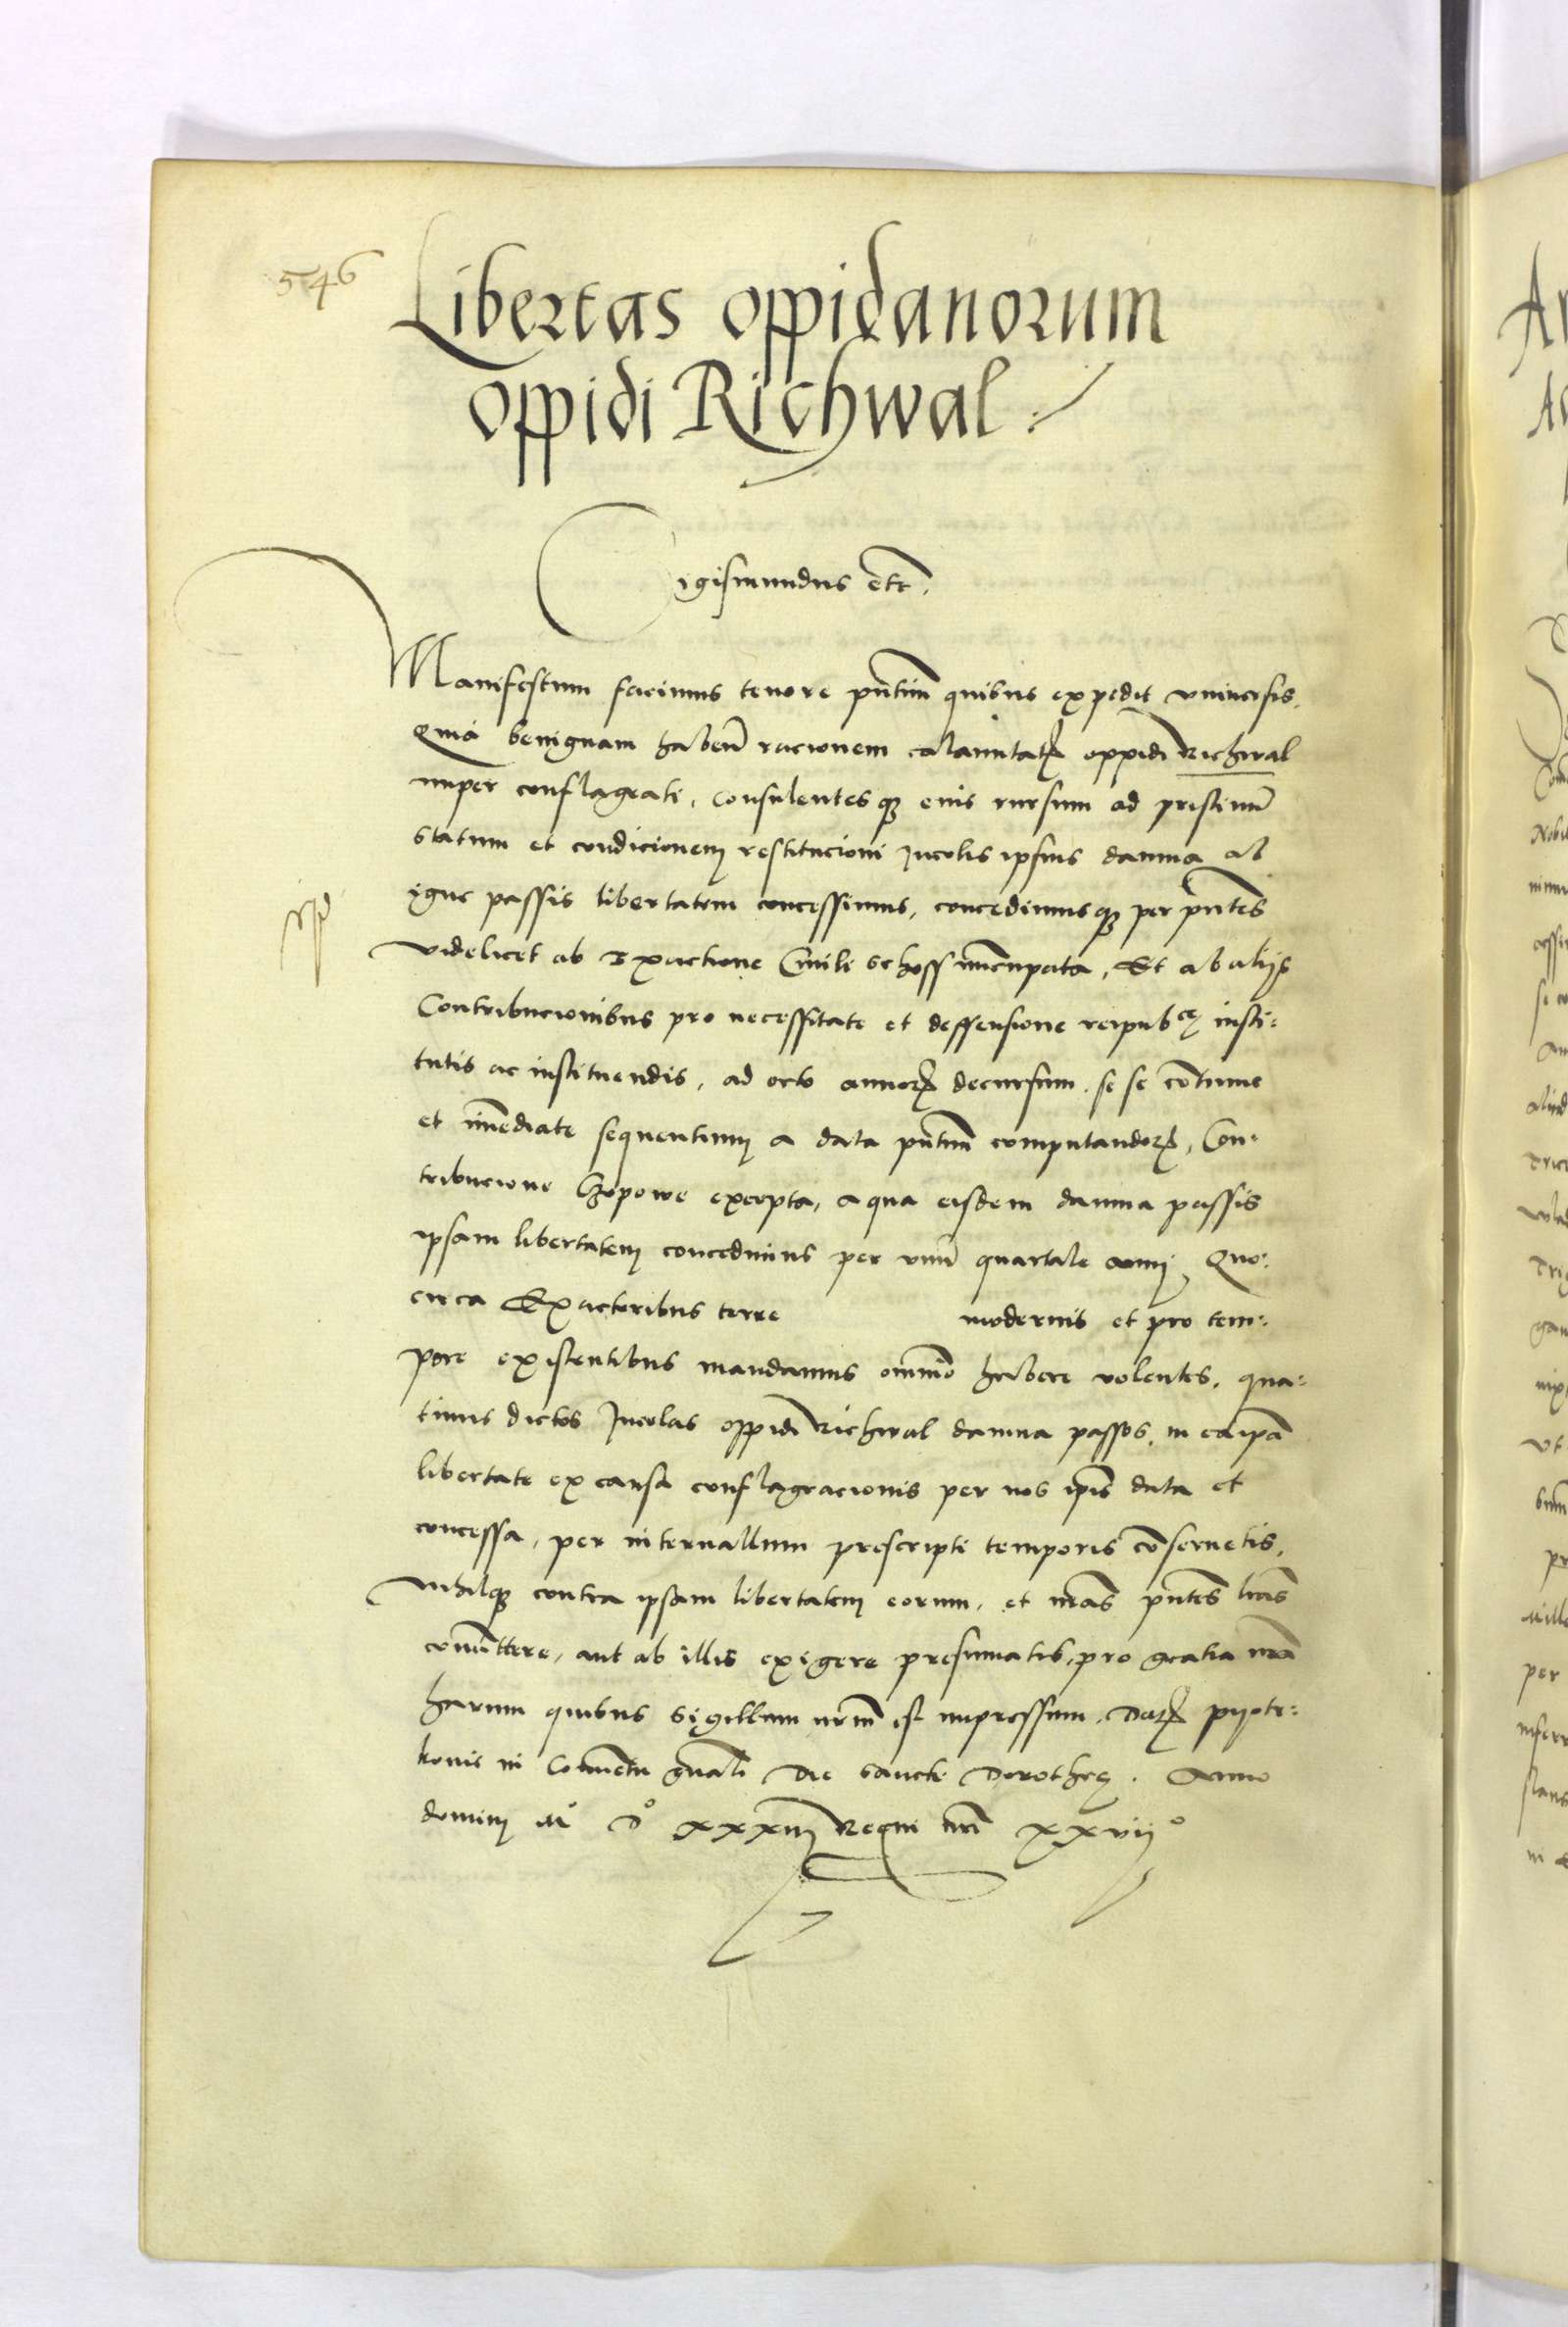 546
Libertas oppidanorum
oppidi Richwal
Sigismundus etc.
Manifestum facimus tenore pñtium quibus expedit vniuersis.
Quia benignam habeñ racionem calamitatꝭ oppidi Richwal
nuper conflagrati, Consulentesqꝫ eius rursum ad pristinũ
statum et condicionem restitucioni Incolis ipsius damna ab
igne passis libertatem concessimus, concedimusqꝫ per pñtes
videlicet ab Exactione Ciuili schoss nũcupata, Et ab alijs
Contribucionibus pro necessitate et deffensione reipubce insti:
tutis ac instituendis, ad octo annorꝭ decursum. se se cõtinue
et ĩmediate sequentium a data pñtium computandorꝭ, Con:
tribucione Czopowe excepta, a qua eisdem damna passis
ipsam libertatem concedimus per vnũ quartale anni, Quo:
circa Exactoribus terre modernis et pro tem:
pore existentibus mandamus om̃ino habere volentes. qua:
tinus dictos Incolas oppidi Richwal damna passos, in ea ip̃a
libertate ex causa conflagracionis per nos ip̃is data et
concessa, per interuallum prescripti temporis cõseruetis,
nihilqꝫ contra ipsam libertatem eorum, et nr̃as pñtes lr̃as
com̃ittere, aut ab illis exigere presumatis, pro gratia nr̃a
harum quibus sigillum nr̃m est impressum. Datꝭ pyotr:
kouie in Conuẽtu gñali die sancte Dorothee. Anno
domini Mº Dº xxxiij Regni nr̃i xxvijº